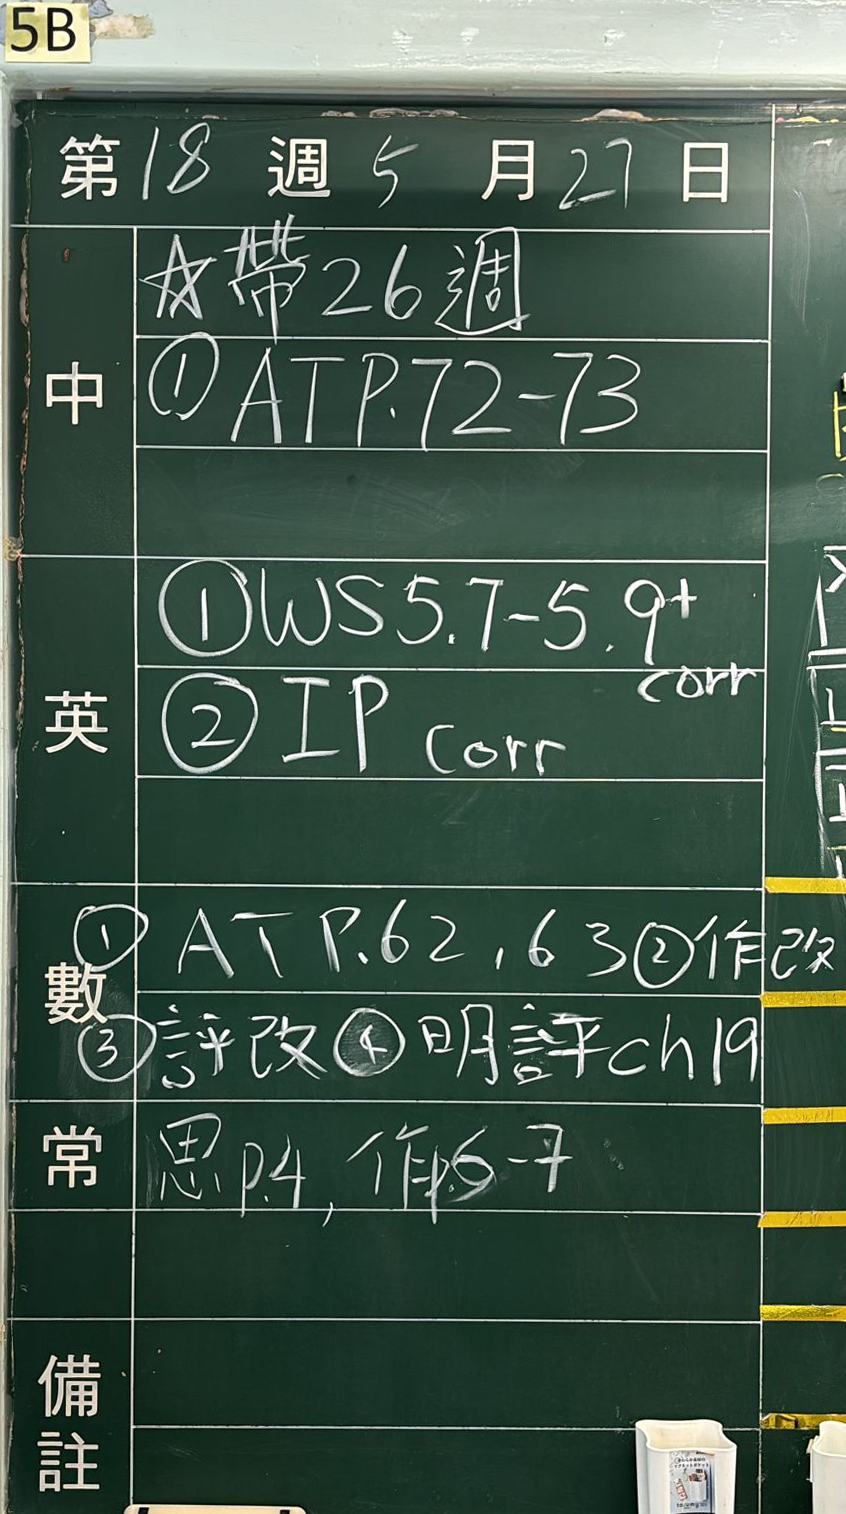 5B
第18週5月27日
中
☆帶26週
①ATP.72-73
英
①WS5.7-5.9+
corr
②IP corr
數
①ATP.62,63②作改
③評改④明評ch19
常
思p.4,作p.6-7
備註